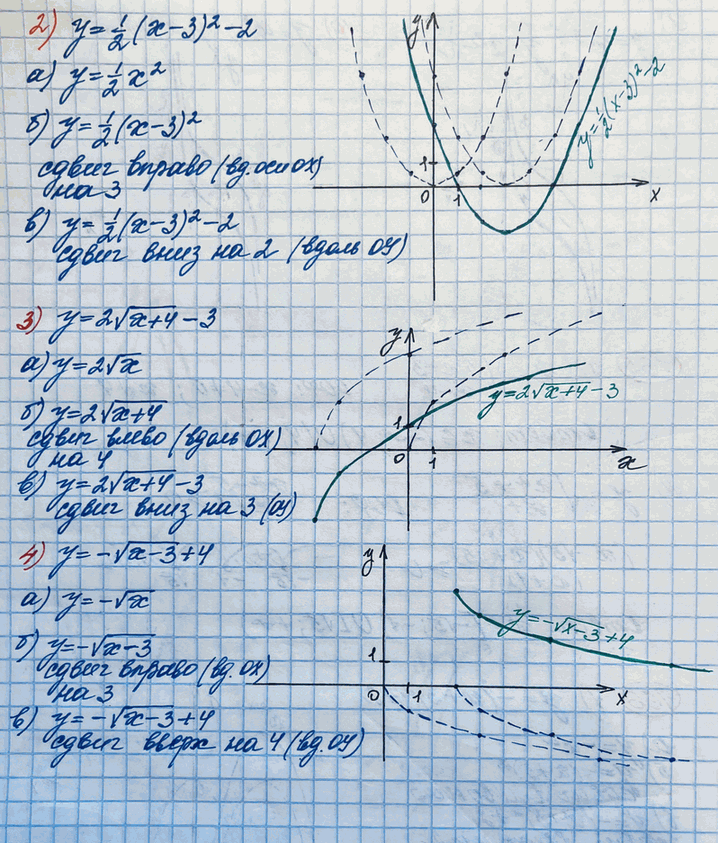 2) y = ½(x-3)² - 2
а) y = ½x²
б) y = ½(x-3)²
сдвиг вправо (вд. оси ОХ)
на 3
в) y = ½(x-3)² - 2
сдвиг вниз на 2 (вдоль ОУ)
y
1
0 1 x
y = ½(x-3)² - 2
3) y = 2√(x+4) - 3
а) y = 2√x
б) y = 2√(x+4)
сдвиг влево (вдоль ОХ)
на 4
в) y = 2√(x+4) - 3
сдвиг вниз на 3 (ОУ)
y
y = 2√(x+4) - 3
1
0 1 x
4) y = -√(x-3) + 4
а) y = -√x
б) y = -√(x-3)
сдвиг вправо (вд. ОХ)
на 3
в) y = -√(x-3) + 4
сдвиг вверх на 4 (вд. ОУ)
y
y = -√(x-3) + 4
1
0 1 x